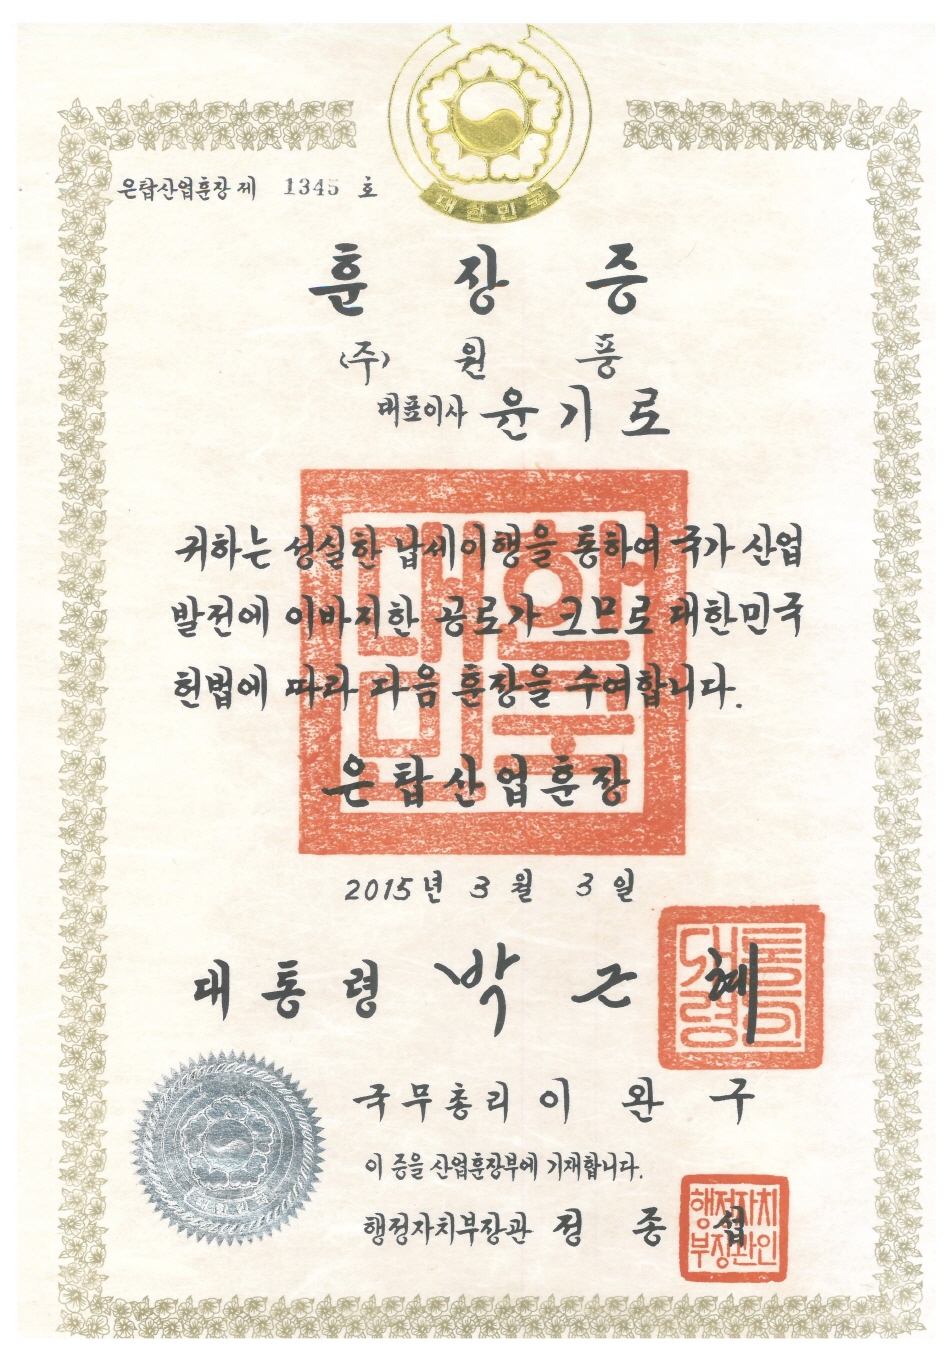 대한민국
은탑산업훈장 제 1345 호
훈 장 증
(주) 원 풍
대표이사 윤 기 로
귀하는 성실한 납세이행을 통하여 국가 산업
발전에 이바지한 공로가 크므로 대한민국
헌법에 따라 다음 훈장을 수여합니다.
은탑산업훈장
2015년 3월 3일
대통령 박 근 혜
국무총리 이 완 구
이 증을 산업훈장부에 기재합니다.
행정자치부장관 정 종 섭
대한
민국
행정자치
부장관인
대한민국